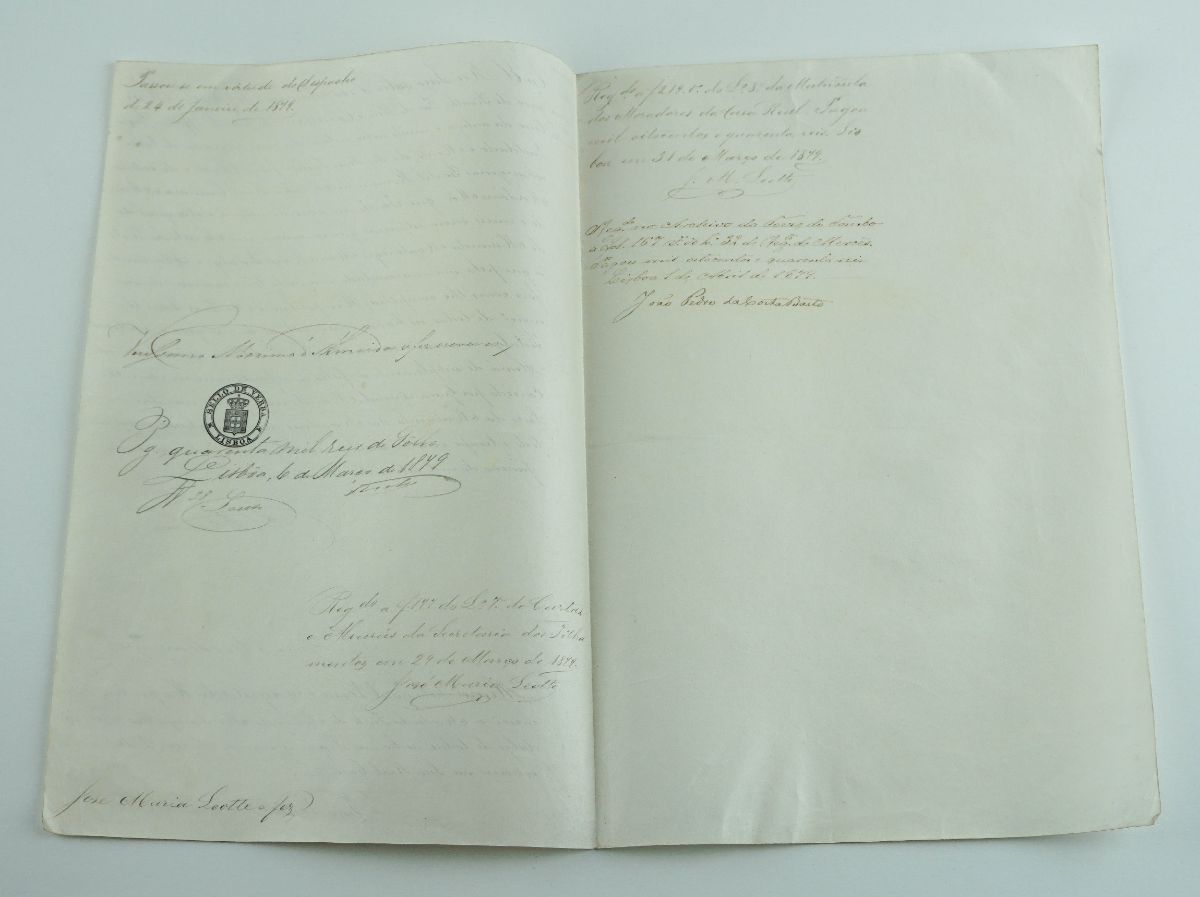 Passou-se em virtude de Despacho
de 24 de Janeiro de 1879.
Maximo d'Almeida a fez escrever
SELLO DE VERBA
LISBOA
Pg. quarenta mil reis de Sello
Lisbôa, 6 de Março de 1879
Nº 28
Regdo a f 177 do Lº 7º de Cartas
e Mercês da Secretaria dos Filha
mentos em 29 de Março de 1879.
José Maria Leotte
José Maria Leotte a fez
Regdo a f 219 vº do Lº 8º da Matricula
dos Moradores da Casa Real. Pagou
mil oitocentos e quarenta reis. Lis
boa em 31 de Março de 1879.
J. M. Leotte
Regdo no Archivo da Torre do Tombo
a fol. 167 do Lº 32 de Regº de Mercês.
Pagou mil oitocentos e quarenta reis
Lisboa 1 de Abril de 1879.
João Pedro da Costa Basto